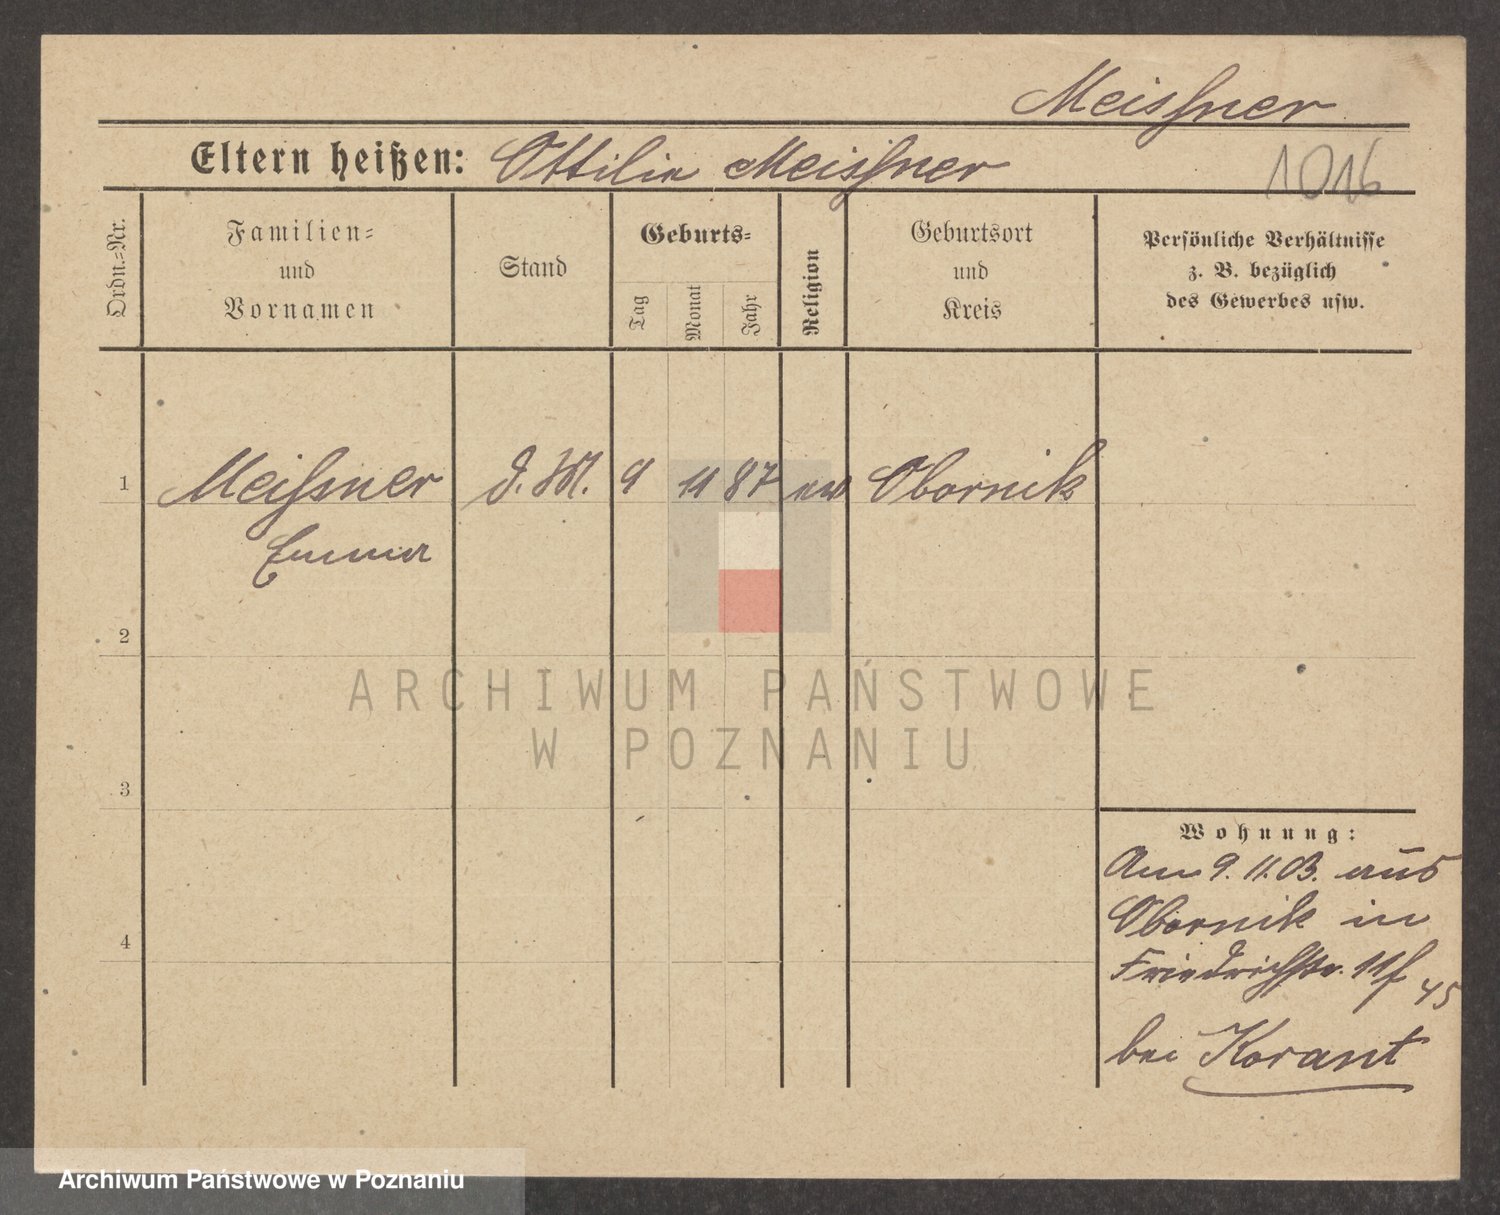 Meissner
Eltern heißen: Ottilie Meissner
1016
Ordn.-Nr.
Familien-
und
Vornamen
Stand
Geburts-
Tag
Monat
Jahr
Religion
Geburtsort
und
Kreis
Persönliche Verhältnisse
z. B. bezüglich
des Gewerbes usw.
1 Meissner d. M. 9 11 87 ev Obornik
Emma
2
ARCHIWUM PAŃSTWOWE
W POZNANIU
3
Wohnung:
Am 9. 11. 03. aus
Obornik in
4
Friedrichstr. 11
45
bei Korant
Archiwum Państwowe w Poznaniu